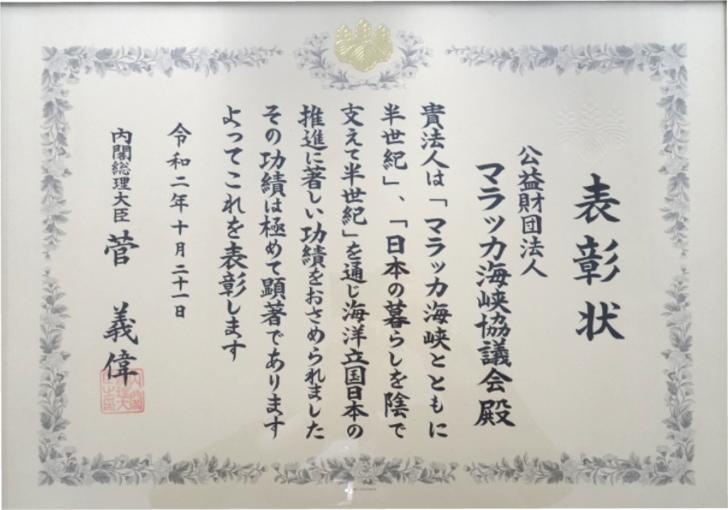 表彰状
公益財団法人
マラッカ海峡協議会殿
貴法人は「マラッカ海峡とともに
半世紀」、「日本の暮らしを陰で
支えて半世紀」を通じ海洋立国日本の
推進に著しい功績をおさめられました
その功績は極めて顕著であります
よってこれを表彰します
令和二年十月二十一日
内閣総理大臣 菅義偉